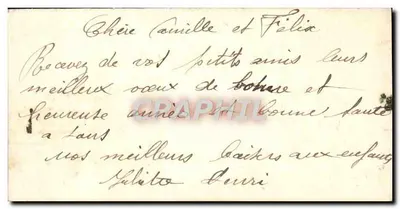 Chère Camille et Félix
Recevez de vos petits amis leurs
meilleux voeux de bonne et
heureuse année et bonne santé
a tous
nos meilleurs baisers aux enfants
Henri